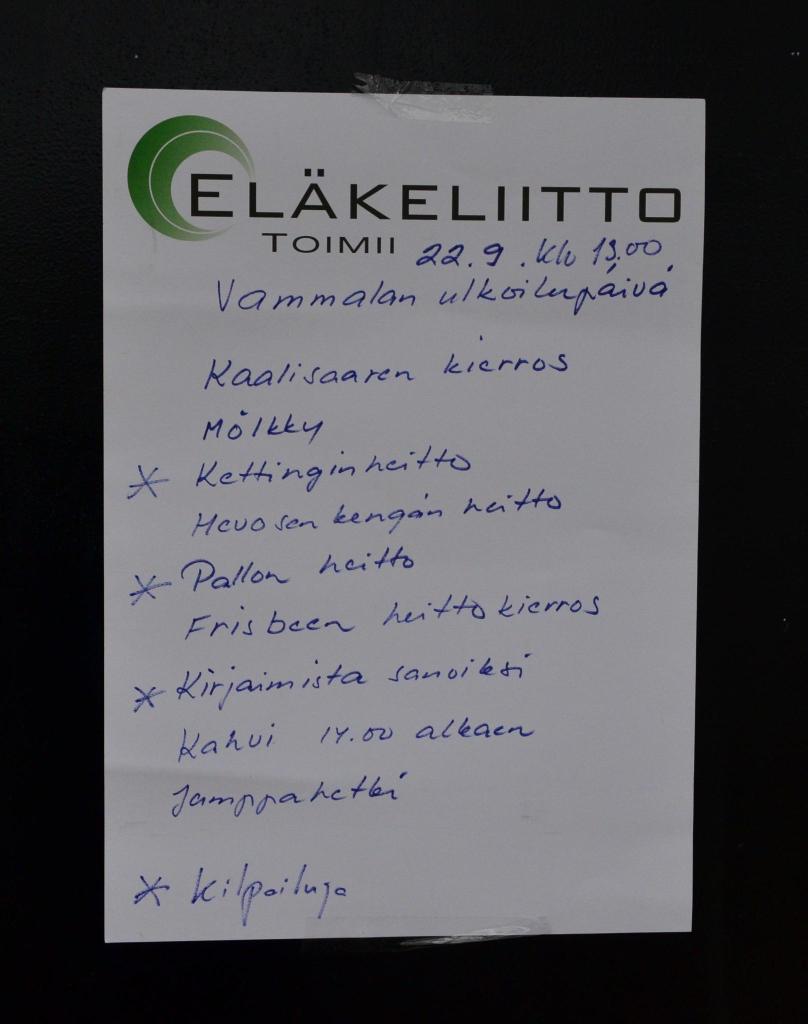 ELÄKELIITTO
TOIMII 22.9. klo 13.00
Vammalan ulkoilupäivä
Kaalisaaren kierros
Mölkky
* Kettinginheitto
Hevosenkengän heitto
* Pallon heitto
Frisbeen heittokierros
* Kirjaimista sanoiksi
Kahvi 14.00 alkaen
Jamppahetki
* kilpailuja